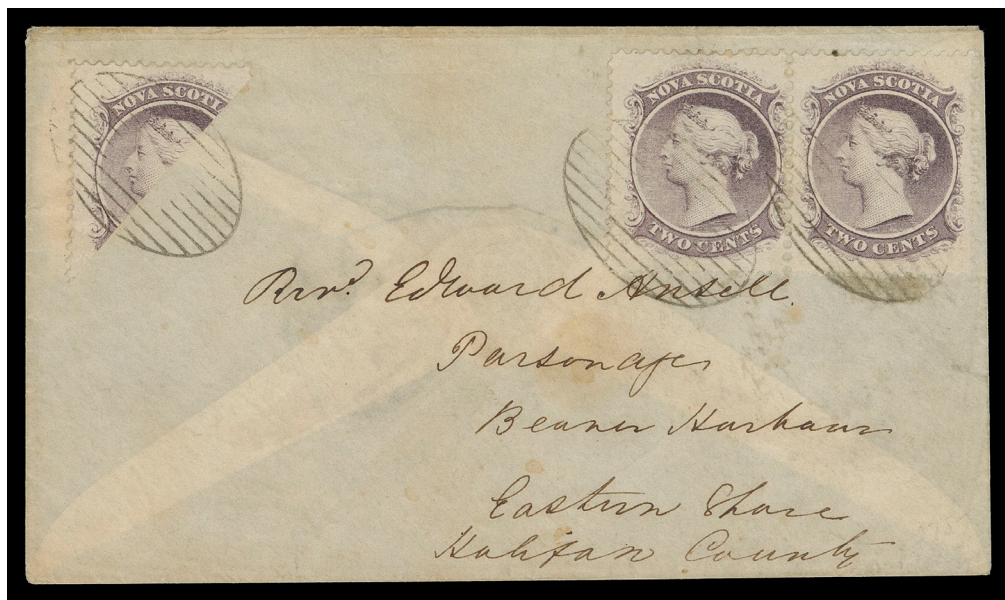 NOVA SCOTI
NOVA SCOTIA
TWO CENTS
NOVA SCOTIA
TWO CENTS
Revd. Edward Ansell.
Parsonage
Beaver Harbour
Eastern Shore
Halifax County